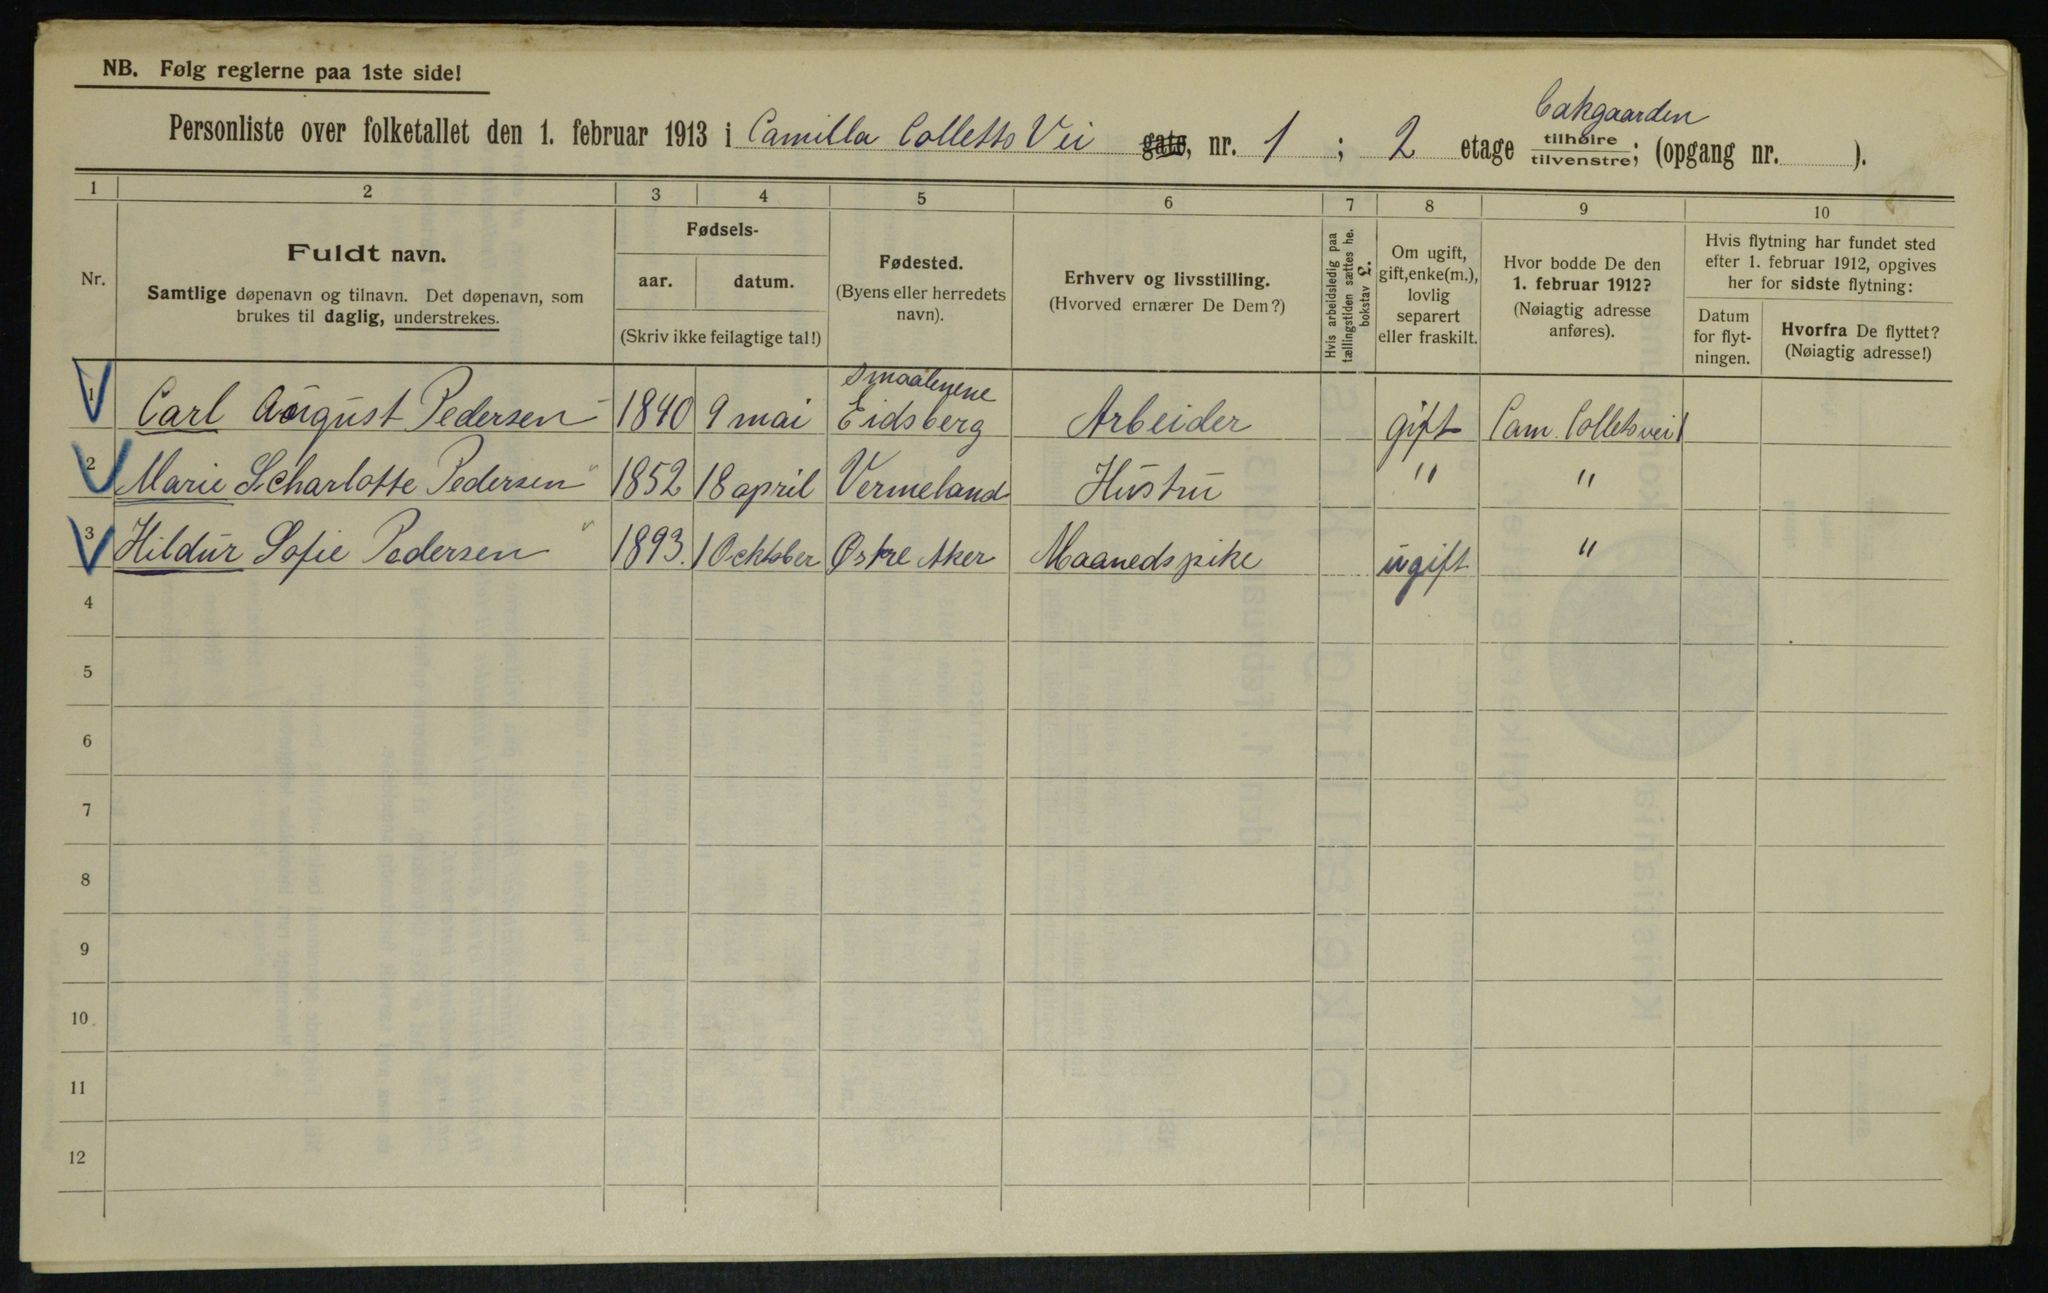 NB. Følg reglerne paa 1ste side!
Bakgaarden
Personliste over folketallet den 1. februar 1913 i Camilla Colletts Vei gate, nr. 1 ; 2 etage tilhøire/tilvenstre; (opgang nr. ).
1 2 3 4 5 6 7 8 9 10
Nr.
Fuldt navn.
Samtlige døpenavn og tilnavn. Det døpenavn, som
brukes til daglig, understrekes.
Fødsels-
aar. datum.
(Skriv ikke feilagtige tal!)
Fødested.
(Byens eller herredets
navn).
Erhverv og livsstilling.
(Hvorved ernærer De Dem?)
Hvis arbeidsledig paa
tællingstiden sættes he.
bokstav L.
Om ugift,
gift, enke(m.),
lovlig
separert
eller fraskilt.
Hvor bodde De den
1. februar 1912?
(Nøiagtig adresse
anføres).
Hvis flytning har fundet sted
efter 1. februar 1912, opgives
her for sidste flytning:
Datum
for flyt-
ningen.
Hvorfra De flyttet?
(Nøiagtig adresse!)
Smaalenene
1 Carl August Pedersen 1840 9 mai Eidsberg Arbeider gift Cam. Colletsvei 1
2 Marie Scharlotte Pedersen " 1852 18 april Vermeland Hustru " "
3 Hildur Sofie Pedersen " 1893. 1 Ocktober Østre Aker Maanedspike ugift "
4
5
6
7
8
9
10
11
12